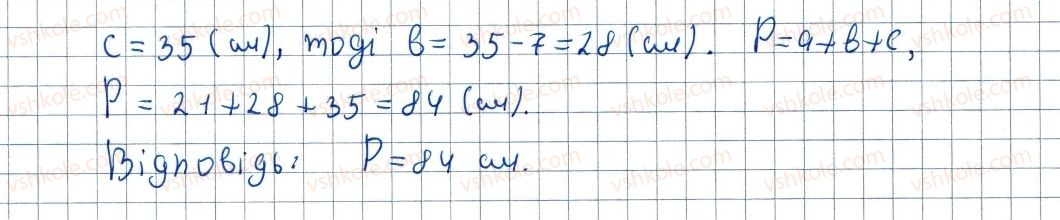 c = 35 (см), тоді b = 35 - 7 = 28 (см). P = a + b + c,
P = 21 + 28 + 35 = 84 (см).
Відповідь: P = 84 см.